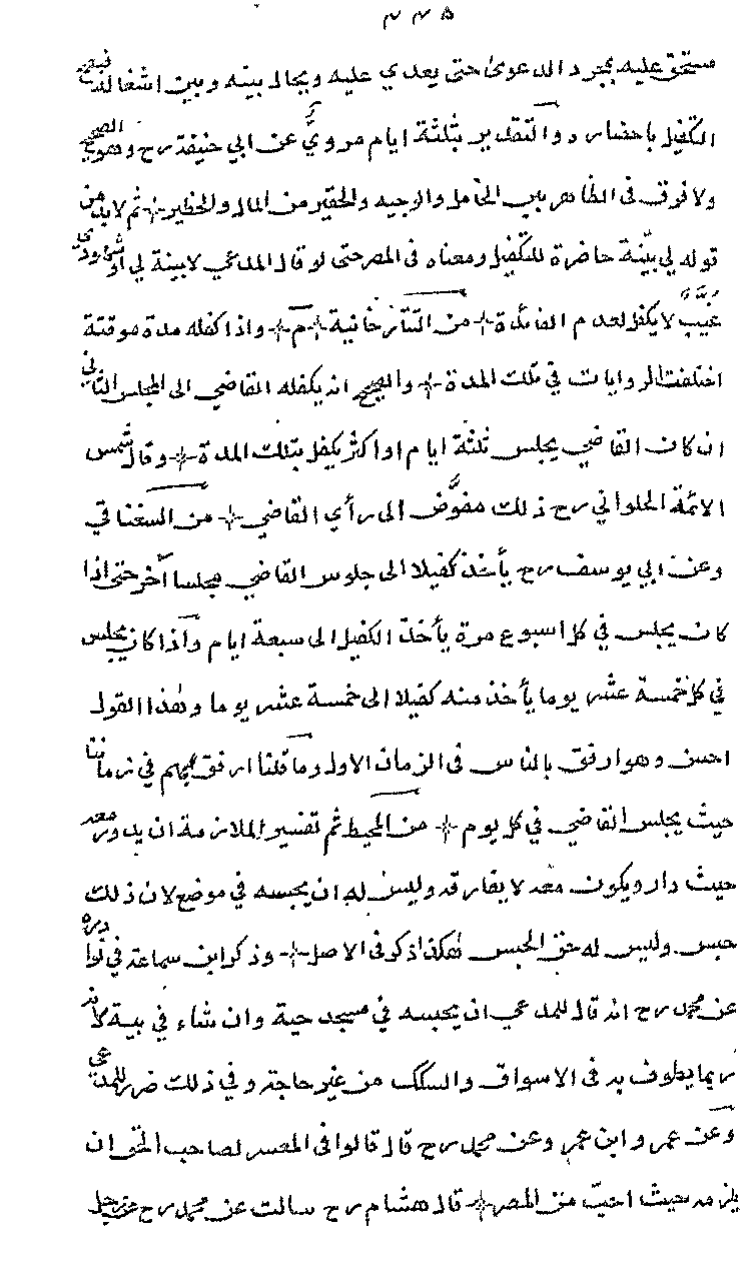 ٢٢٥
مستحق عليه بمجرد الدعوىٰ حتى يعدي عليه ويحال بينه وبين اشغاله فيصح
التكفيل باحضاره والتقدير بثلثة ايام مرويّ عن ابي حنيفة رح وهو الصحيح
ولا فرق فى الظاهر بين الخامل والوجيه والحقير من المال والخطير ثم لا بد من
قوله لي بيّنة حاضرة للتكفيل ومعناه فى المصر حتى لو قال المدعي لا بينة لي او شهودي
غيبٌ لا يكفل لعدم الفائدة من التتارخانية م واذا كفله مدة موقتة
اختلفت الروايات في تلك المدة والصحيح انه يكفله القاضي الى المجلس الثاني
ان كان القاضي يجلس ثلثة ايام او اكثر يكفل بتلك المدة وقال شمس
الائمة الحلواني رح ذلك مفوّض الى رأي القاضي من السغناقي
وعن ابي يوسف رح يأخذ كفيلا الى جلوس القاضي مجلسا آخر حتى اذا
كان يجلس في كل اسبوع مرة يأخذ الكفيل الى سبعة ايام واذا كان يجلس
في كل خمسة عشر يوما يأخذ منه كفيلا الى خمسة عشر يوما وهٰذا القول
احسن وهو ارفق بالناس فى الزمان الاول وما قلنا ارفق بهم في زماننا
حيث يجلس القاضي في كل يوم من المحيط ثم تفسير الملازمة ان يدور معه
حيث دار ويكون معه لا يفارقه وليس له ان يحبسه في موضع لان ذلك
حبس وليس له حق الحبس هٰكذا ذكر فى الاصل وذكر ابن سماعة في نوادره
عن محمد رح انه قال للمدعي ان يحبسه في مسجد حية وان شاء في بيته لانه
ربما يطوف به فى الاسواق والسكك من غير حاجة وفي ذلك ضرر للمدعي
وعن عمر وابن عمر وعن محمد رح قال قالوا فى المعسر لصاحب الحق ان
يلزمه حيث احبّ من المصر قال هشام رح سالت عن محمد رح عن رجل